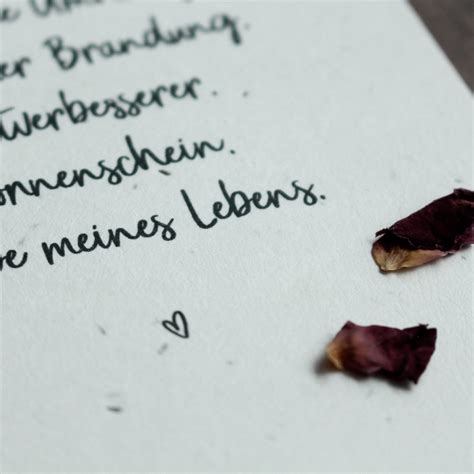 er Brandung.
tverbesserer.
onnenschein.
be meines Lebens.